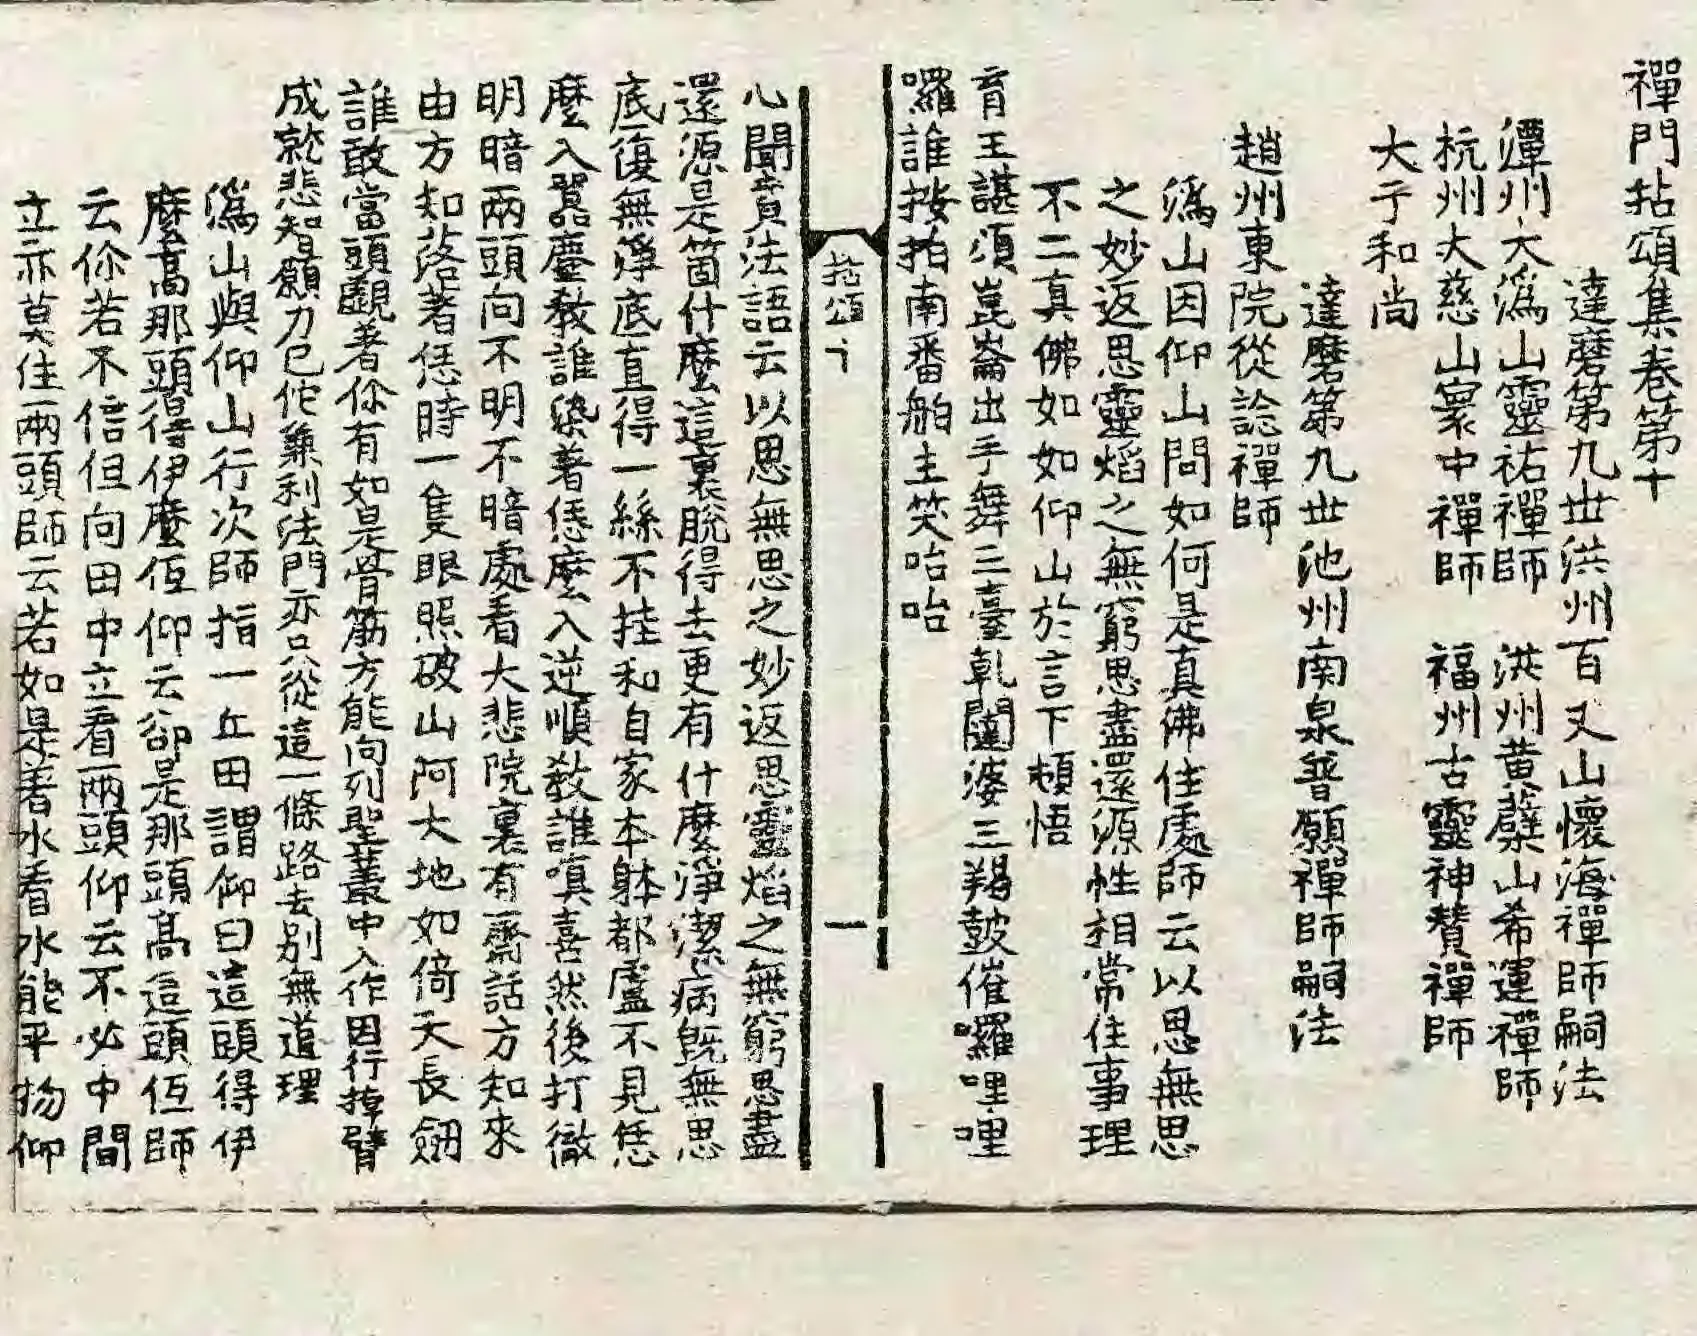 禪門拈頌集卷第十
達磨第九世洪州百丈山懷海禪師嗣法
潭州大潙山靈祐禪師　洪州黃蘗山希運禪師
杭州大慈山寰中禪師　福州古靈神贊禪師
大于和尚
達磨第九世池州南泉普願禪師嗣法
趙州東院從諗禪師
潙山因仰山問如何是真佛住處師云以思無思
之妙返思靈焰之無窮思盡還源性相常住事理
不二真佛如如仰山於言下頓悟
育王諶頌崑崙出手舞三臺乹闥婆三羯鼓催囉哩哩
囉誰按拍南番舶主笑咍咍
拈頌十
一
心聞賁法語云以思無思之妙返思靈焰之無窮思盡
還源是箇什麽這裏脫得去更有什麽淨潔病旣無思
底復無淨底直得一絲不挂和自家本躰都盧不見恁
麽入嚣塵敎誰染著恁麽入逆順敎誰嗔喜然後打徹
明暗兩頭向不明不暗處看大悲院裏有齋話方知來
由方知落著恁時一隻眼照破山阿大地如倚天長劒
誰敢當頭覷著你有如是骨筋方能向列聖叢中入作因行掉臂
成就悲智願力已佗兼利法門亦只從這一條路去別無道理
潙山與仰山行次師指一丘田謂仰曰這頭得伊
麽高那頭得伊麽伍仰云卻是那頭高這頭伍師
云你若不信但向田中立看兩頭仰云不必中間
立亦莫住兩頭師云若如是著水看水能平物仰